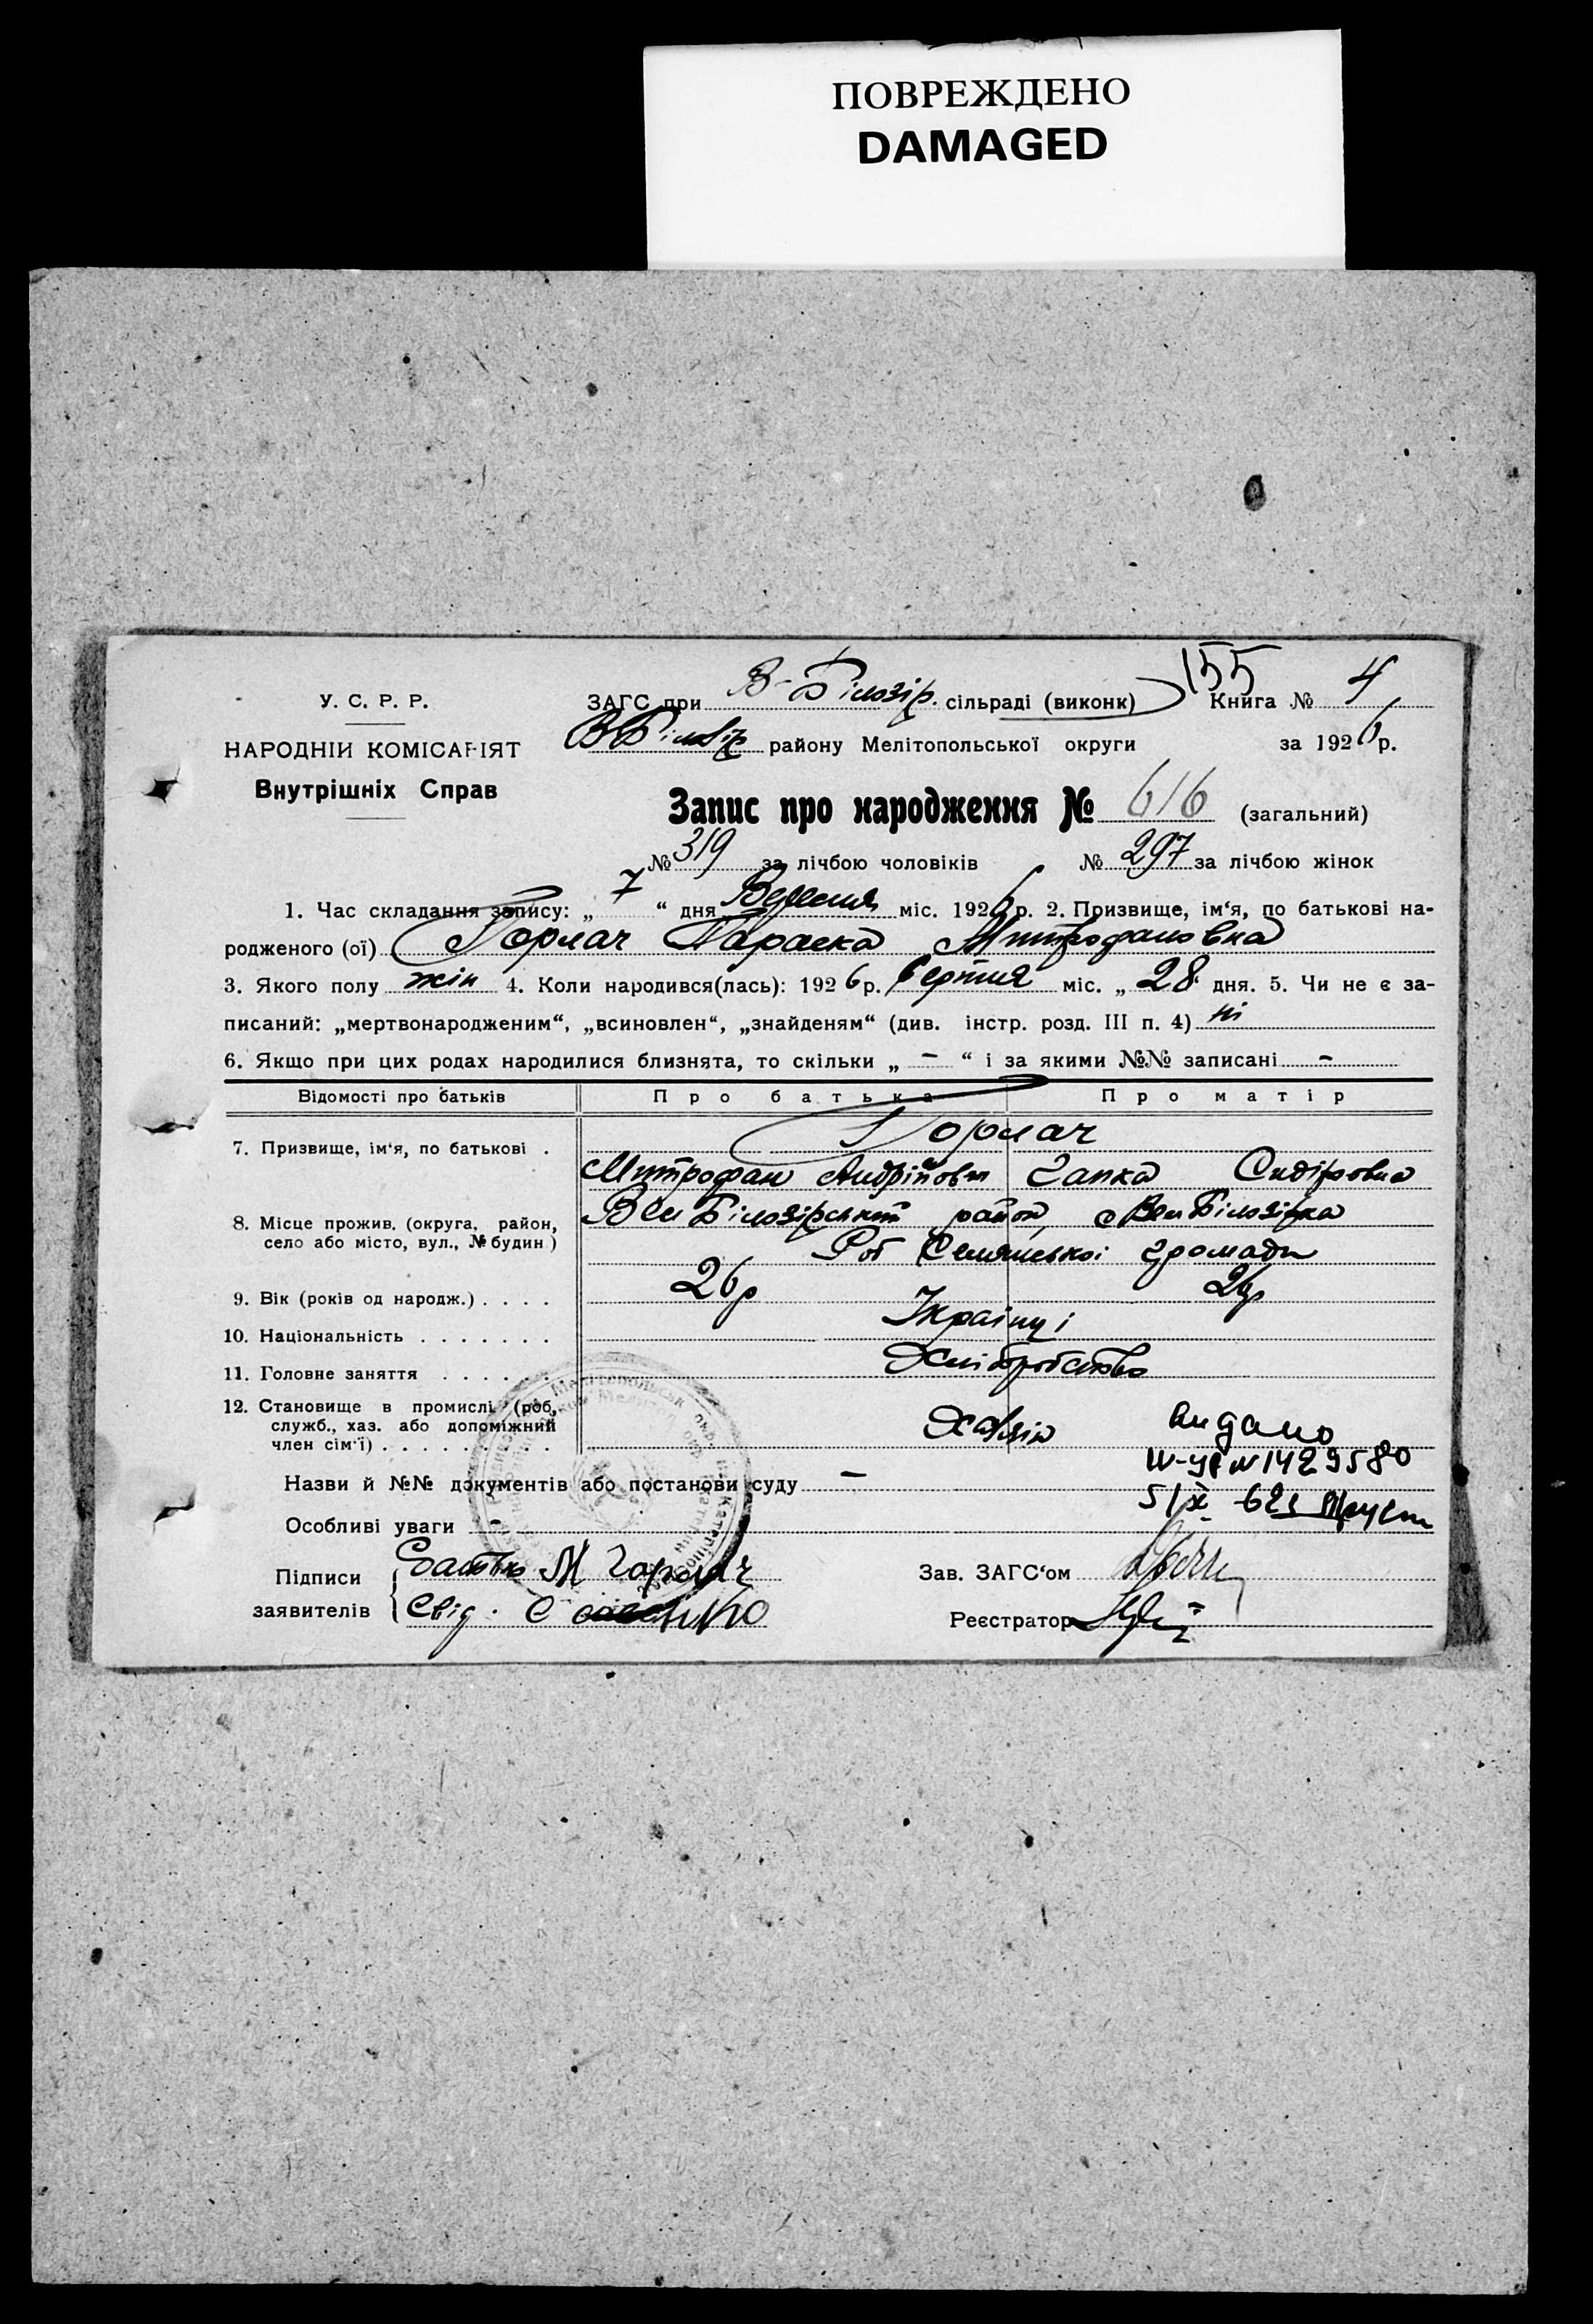 ПОВРЕЖДЕНО
DAMAGED
У. С. Р. Р. ЗАГС при В-Білозір. сільраді (виконк) 155 Книга № 4
НАРОДНІЙ КОМІСАРІЯТ В Білозір району Мелітопольської округи за 1926 р.
Внутрішніх Справ
Запис про народження № 616 (загальний)
№ 319 за лічбою чоловіків № 297 за лічбою жінок
1. Час складання запису: „ 7 “ дня Вересня міс. 1926 р. 2. Призвище, ім‘я, по батькові на-
родженого (ої) Горлач Параска Митрофановна
3. Якого полу жін 4. Коли народився(лась): 1926 р. Серпня міс. „ 28 дня. 5. Чи не є за-
писаний: „мертвонародженим“, „всиновлен“, „знайденям“ (див. інстр. розд. III п. 4) ні
6. Якщо при цих родах народилися близнята, то скільки „ – “ і за якими №№ записані –
Відомості про батьків Про батька Про матір
7. Призвище, ім‘я, по батькові . Горлач
Митрофан Андрійович Гапка Сидіровна
8. Місце прожив. (округа, район, Вел Білозірський район, с Вел Білозірка
село або місто, вул., № будин)
Селянської громади
9. Вік (років од народж.) . . . . 26 р
10. Національність . . . . . . . Українці
11. Головне заняття . . . . . . Хліборобство
12. Становище в промислі (роб,
служб., хаз. або допоміжний
член сім‘ї) . . . . . . . . . Хазяїн видано
№ 1429580
Назви й №№ документів або постанови суду –
5/X 62
Особливі уваги –
Підписи Батько М Горлач Зав. ЗАГС‘ом
заявителів Свід. Реєстратор